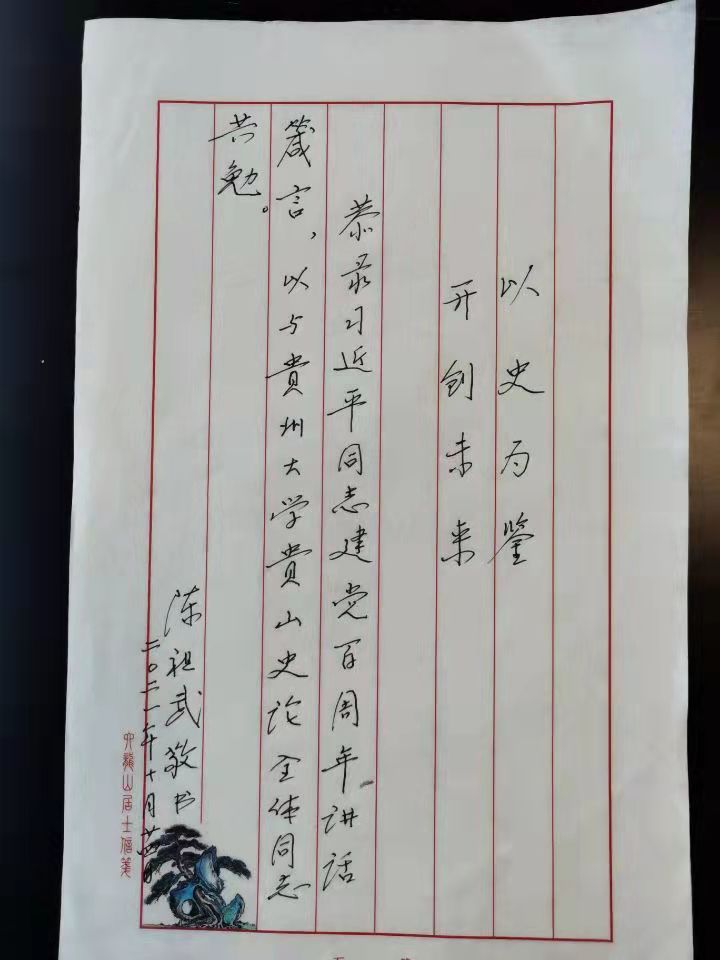 以史为鉴
开创未来
恭录习近平同志建党百周年讲话
箴言，以与貴州大学貴山史论全体同志
共勉。
陈祖武敬书
二〇二一年十月廿四日
山居士信笺